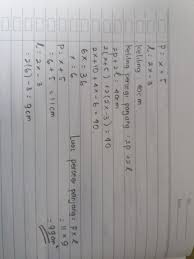 p : x + 5
l : 2x - 3
keliling 40cm
keliling persegi panjang : 2p x 2l
2p + 2l = 40cm
2(x+5) + 2(2x-3) = 40
2x + 10 + 4x - 6 = 40
6x = 36
x = 6
p : x + 5
= 6 + 5 = 11 cm
l : 2x - 3
= 2(6) - 3 = 9cm
Luas persegi panjang : p x l
= 11 x 9
= 99cm²